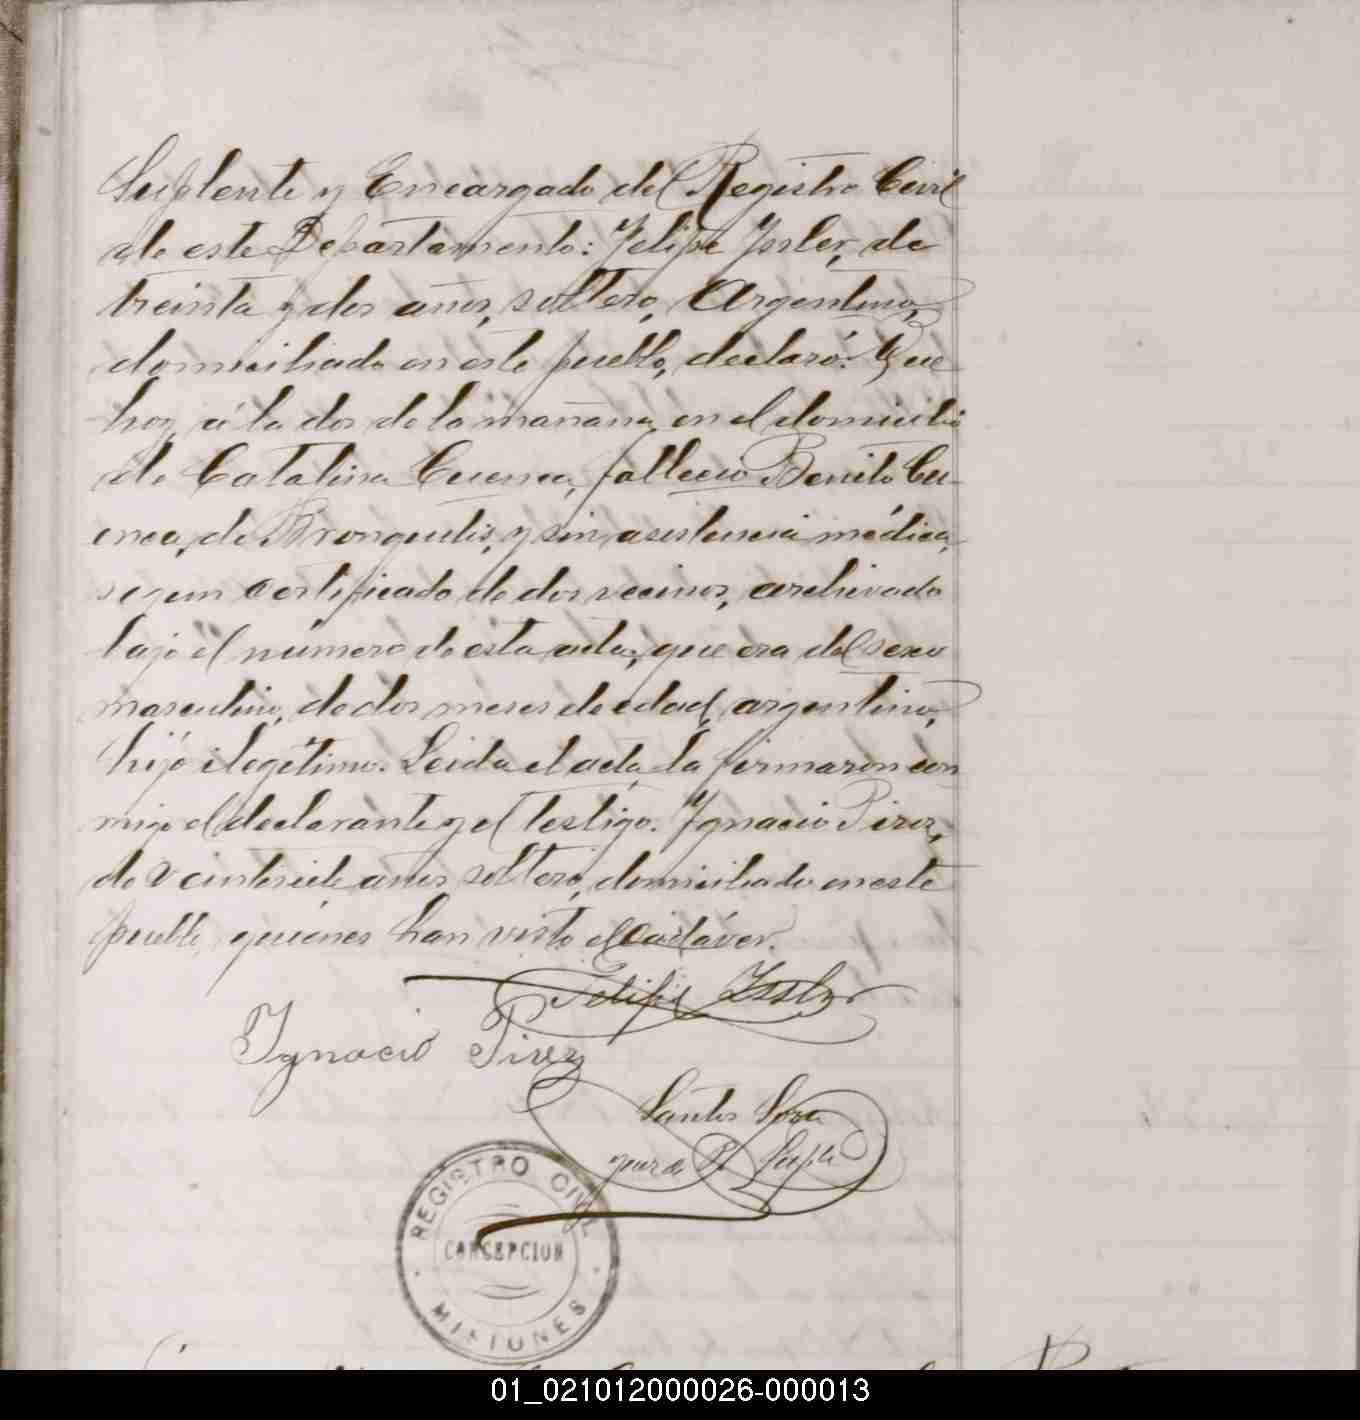 Suplente y Encargado del Registro Civil
de este Departamento: Felipe Yssler, de
treinta y dos años, soltero, Argentino,
domiciliado en este pueblo, declaró: Que
hoy á la dos de la mañana en el domicilio
de Catalina Cuenca, fallecio Benito Cu-
enca, de Bronquitis, y sin asistencia médica,
segun certificado de dos vecinos, archivado
bajo el número de esta acta, que era del sexo
masculino, de dos meses de edad, argentino,
hijo ilegítimo. Leida el acta, la firmaron con
migo el declarante y el testigo. Ygnacio Pirez,
de veintisiete años, soltero, domiciliado en este
pueblo, quiénes han visto el cadáver.
Felipe Issler
Ygnacio Pirez
Santos Sosa
Juez de P. Supte
REGISTRO CIVIL
CONCEPCION
MISIONES
01_021012000026-000013